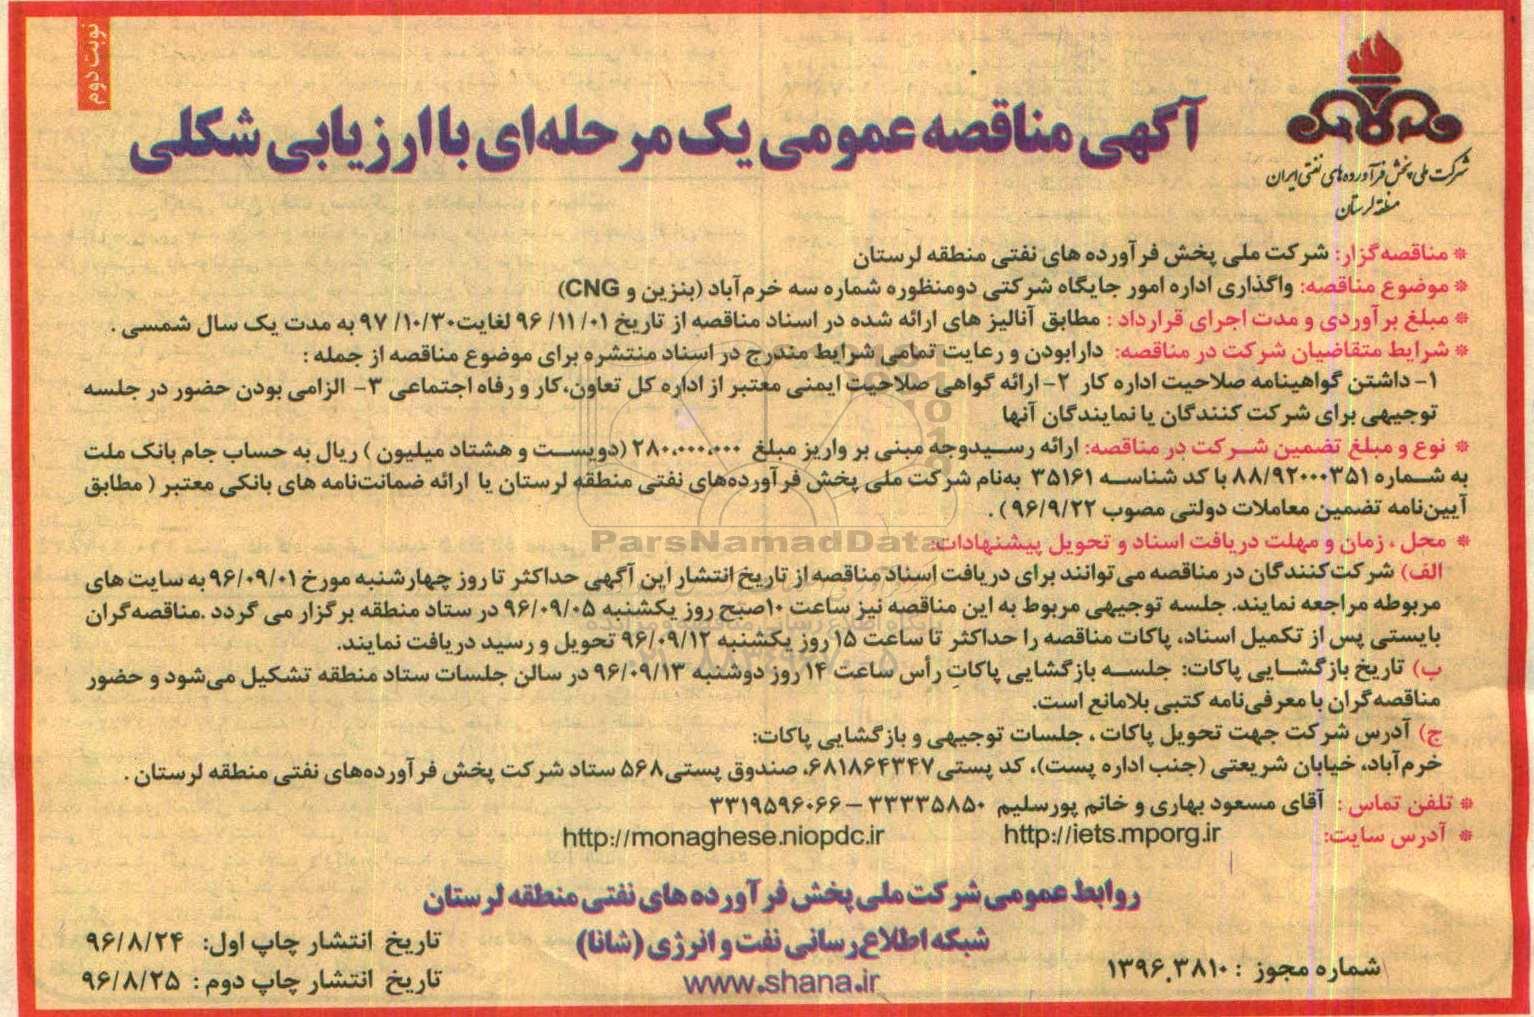 نوبت دوم
شرکت ملی پخش فرآورده‌های نفتی ایران
منطقه لرستان
آگهی مناقصه عمومی یک مرحله‌ای با ارزیابی شکلی
* مناقصه‌گزار: شرکت ملی پخش فرآورده های نفتی منطقه لرستان
* موضوع مناقصه: واگذاری اداره امور جایگاه شرکتی دومنظوره شماره سه خرم‌آباد (بنزین و CNG)
* مبلغ برآوردی و مدت اجرای قرارداد : مطابق آنالیز های ارائه شده در اسناد مناقصه از تاریخ ۹۶/۱۱/۰۱ لغایت ۹۷/۱۰/۳۰ به مدت یک سال شمسی .
* شرایط متقاضیان شرکت در مناقصه: دارابودن و رعایت تمامی شرایط مندرج در اسناد منتشره برای موضوع مناقصه از جمله :
۱- داشتن گواهینامه صلاحیت اداره کار ۲- ارائه گواهی صلاحیت ایمنی معتبر از اداره کل تعاون،کار و رفاه اجتماعی ۳- الزامی بودن حضور در جلسه
توجیهی برای شرکت کنندگان یا نمایندگان آنها
* نوع و مبلغ تضمین شرکت در مناقصه: ارائه رسیدوجه مبنی بر واریز مبلغ ۲۸۰،۰۰۰،۰۰۰ (دویست و هشتاد میلیون ) ریال به حساب جام بانک ملت
به شماره ۸۸/۹۲۰۰۰۳۵۱ با کد شناسه ۳۵۱۶۱ به‌نام شرکت ملی پخش فرآورده‌های نفتی منطقه لرستان یا ارائه ضمانت‌نامه های بانکی معتبر ( مطابق
آیین‌نامه تضمین معاملات دولتی مصوب ۹۶/۹/۲۲) .
ParsNamadData
* محل ، زمان و مهلت دریافت اسناد و تحویل پیشنهادات:
الف) شرکت‌کنندگان در مناقصه می‌توانند برای دریافت اسناد مناقصه از تاریخ انتشار این آگهی حداکثر تا روز چهارشنبه مورخ ۹۶/۰۹/۰۱ به سایت های
مربوطه مراجعه نمایند. جلسه توجیهی مربوط به این مناقصه نیز ساعت ۱۰صبح روز یکشنبه ۹۶/۰۹/۰۵ در ستاد منطقه برگزار می گردد .مناقصه‌گران
بایستی پس از تکمیل اسناد، پاکات مناقصه را حداکثر تا ساعت ۱۵ روز یکشنبه ۹۶/۰۹/۱۲ تحویل و رسید دریافت نمایند.
ب) تاریخ بازگشایی پاکات: جلسه بازگشایی پاکات رأس ساعت ۱۴ روز دوشنبه ۹۶/۰۹/۱۳ در سالن جلسات ستاد منطقه تشکیل می‌شود و حضور
مناقصه‌گران با معرفی‌نامه کتبی بلامانع است.
ج) آدرس شرکت جهت تحویل پاکات ، جلسات توجیهی و بازگشایی پاکات:
خرم‌آباد، خیابان شریعتی (جنب اداره پست)، کد پستی۶۸۱۸۶۴۳۴۷، صندوق پستی۵۶۸ ستاد شرکت پخش فرآورده‌های نفتی منطقه لرستان .
* تلفن تماس : آقای مسعود بهاری و خانم پورسلیم ۳۳۳۳۵۸۵۰ – ۳۳۱۹۵۹۶۰۶۶
* آدرس سایت: http://iets.mporg.ir http://monaghese.niopdc.ir
روابط عمومی شرکت ملی پخش فرآورده های نفتی منطقه لرستان
شبکه اطلاع‌رسانی نفت و انرژی (شانا)
www.shana.ir
شماره مجوز : ۱۳۹۶.۳۸۱۰
تاریخ انتشار چاپ اول: ۹۶/۸/۲۴
تاریخ انتشار چاپ دوم : ۹۶/۸/۲۵